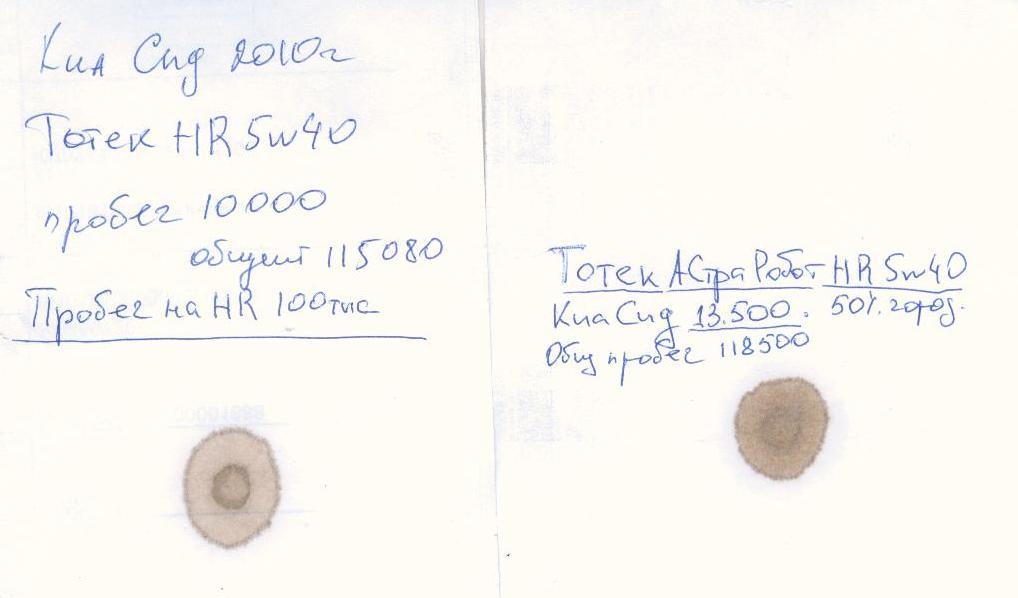 Киа Сид 2010г
Тотек HR 5w40
пробег 10000
общий 115080
Пробег на HR 100тис
Тотек Астра Робот HR 5w40
Киа Сид 13.500. 50% город.
Общ пробег 118500